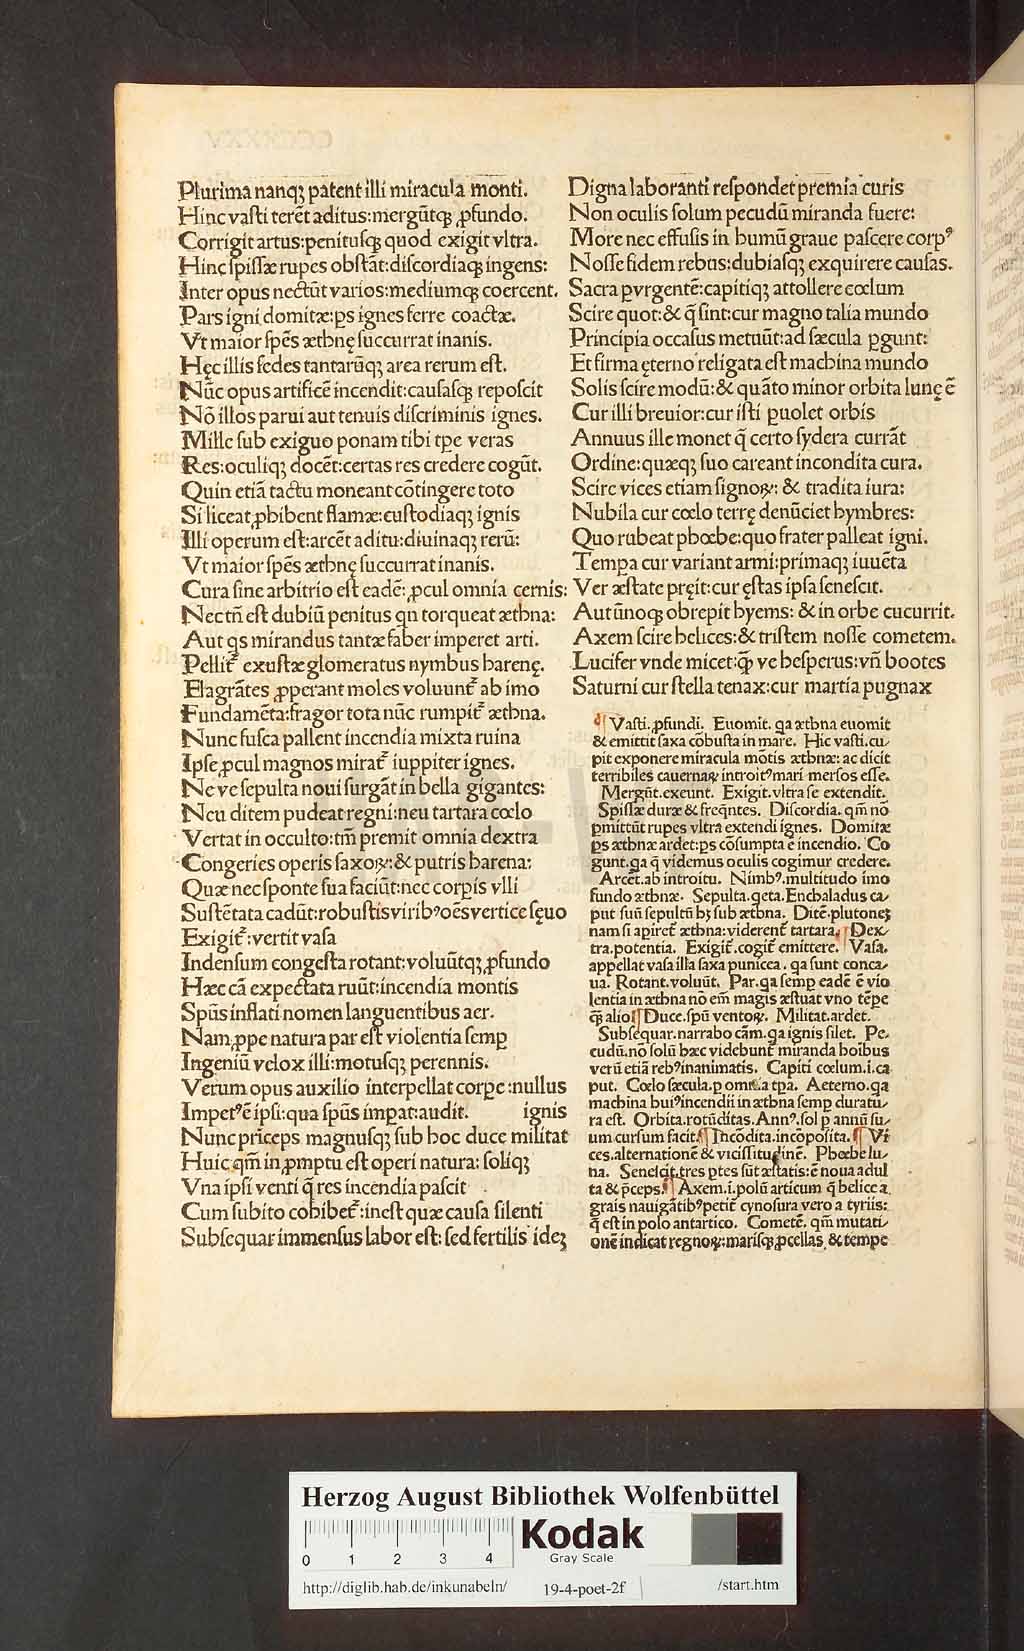 Plurima nanqꝫ patent illi miracula monti.
Hinc vasti terēt aditus:mergūtqꝫ ꝓfundo.
Corrigit artus:penitusqꝫ quod exigit vltra.
Hinc spissæ rupes obstāt:discordiaqꝫ ingens:
Inter opus nectūt varios:mediumqꝫ coercent.
Pars igni domitæ:ps ignes ferre coactæ.
Vt maior spēs æthnę succurrat inanis.
Hęc illis sedes tantarūqꝫ area rerum est.
Nūc opus artificē incendit:causasqꝫ reposcit
Nō illos parui aut tenuis discriminis ignes.
Mille sub exiguo ponam tibi tpe veras
Res:oculiqꝫ docēt:certas res credere cogūt.
Quin etiā tactu moneant cōtingere toto
Si liceat ꝓhibent flamæ:custodiaqꝫ ignis
Illi operum est:arcēt aditu:diuinaqꝫ rerū:
Vt maior spēs æthnę succurrat inanis.
Cura sine arbitrio est eadē:ꝓcul omnia cernis:
Nectñ est dubiū penitus qn torqueat æthna:
Aut qs mirandus tantæ faber imperet arti.
Pellit᷑ exustæ glomeratus nymbus harenę.
Flagrātes ꝓperant moles voluunt᷑ ab imo
Fundamēta:fragor tota nūc rumpit᷑ æthna.
Nunc fusca pallent incendia mixta ruina
Ipse ꝓcul magnos mirat᷑ iuppiter ignes.
Ne ve sepulta noui surgāt in bella gigantes:
Neu ditem pudeat regni:neu tartara cœlo
Vertat in occulto:tm̄ premit omnia dextra
Congeries operis saxoꝝ:& putris harena:
Quæ nec sponte sua faciūt:nec corpis vlli
Sustētata cadūt:robustis viribꝰ oēs vertice sęuo
Exigit᷑:vertit vasa
Indensum congesta rotant:voluūtqꝫ ꝓfundo
Hæc cā expectata ruūt:incendia montis
Spūs inflati nomen languentibus aer.
Nam ꝓpe natura par est violentia semp
Ingeniū velox illi:motusqꝫ perennis.
Verum opus auxilio interpellat corpe:nullus
Impetꝰ ē ipsi:qua spūs impat:audit. ignis
Nunc priceps magnusqꝫ sub hoc duce militat
Huic qm̄ in ꝓmptu est operi natura: soliqꝫ
Vna ipsi venti q̄ res incendia pascit
Cum subito cohibet᷑:inest quæ causa silenti
Subsequar immensus labor est: sed fertilis ideꝫ
Digna laboranti respondet premia curis
Non oculis solum pecudū miranda fuere:
More nec effusis in humū graue pascere corpꝰ
Nosse fidem rebus:dubiasqꝫ exquirere causas.
Sacra pvrgentē:capitiqꝫ attollere cœlum
Scire quot:& q̄ sint:cur magno talia mundo
Principia occasus metuūt:ad sæcula ꝑgunt:
Et firma ęterno religata est machina mundo
Solis scire modū:& quāto minor orbita lunę ē
Cur illi breuior:cur isti puolet orbis
Annuus ille monet q̄ certo sydera currāt
Ordine:quæqꝫ suo careant incondita cura.
Scire vices etiam signoꝝ: & tradita iura:
Nubila cur cœlo terrę denūciet hymbres:
Quo rubeat phœbe:quo frater palleat igni.
Tempa cur variant armi:primaqꝫ iuuēta
Ver æstate pręit:cur ęstas ipsa senescit.
Autūnoqꝫ obrepit hyems: & in orbe cucurrit.
Axem scire helices:& tristem nosse cometem.
Lucifer vnde micet:q̄ ve hesperus:vñ bootes
Saturni cur stella tenax:cur martia pugnax
¶ Vasti. ꝓfundi. Euomit. qa æthna euomit
& emittit saxa cōbusta in mare. Hic vasti.cu-
pit exponere miracula mōtis æthnæ: ac dicit
terribiles cauernaꝝ introitꝰ mari mersos esse.
Mergūt.exeunt. Exigit. vltra se extendit.
Spissæ duræ & freqn̄tes. Discordia. qm̄ nō
pmittūt rupes vltra extendi ignes. Domitæ
ps æthnæ ardet:ps cōsumpta ē incendio. Co
gunt.qa q̄ videmus oculis cogimur credere.
Arcēt.ab introitu. Nimbꝰ.multitudo imo
fundo æthnæ. Sepulta.qeta.Enchaladus ca-
put suū sepultū hꝫ sub æthna. Ditē.plutoneꝫ
nam si apiret᷑ æthna:viderent᷑ tartara. ¶ Dex-
tra.potentia. Exigit᷑.cogit᷑ emittere. ¶ Vasa.
appellat vasa illa saxa punicea. qa sunt conca-
ua. Rotant.voluūt. Par.qa semp eadē ē vio
lentia in æthna nō em̄ magis æstuat vno tēpe
q̄ alio ¶ Duce.spū ventoꝝ. Militat.ardet.
Subsequar.narrabo cām.qa ignis silet. Pe.
cudū.nō solū hæc videbunt᷑ miranda boibus
verū etiā rebꝰ inanimatis. Capiti cœlum.i.ca
put. Cœlo sæcula.p omnia tpa. Aeterno.qa
machina huiꝰ incendii in æthna semp duratu-
ra est. Orbita.rotūditas. Annꝰ.sol p annū su-
um cursum facit. ¶ Incōdita.incōposita. ¶ Vi
ces.alternationē & vicissitudinē. Phœbe lu-
na. Senescit.tres ptes sūt æstatis:ē noua adul
ta & p̄ceps. ¶ Axem.i.polū articum q̄ helice a
grais nauigātibꝰ petit᷑ cynosura vero a tyriis:
q̄ est in polo antartico. Cometē. qm̄ mutati-
onē indicat regnoꝝ:marisqꝫ ꝓcellas & tempe
Herzog August Bibliothek Wolfenbüttel
0 1 2 3 4
Kodak
Gray Scale
http://diglib.hab.de/inkunabeln/ 19-4-poet-2f /start.htm